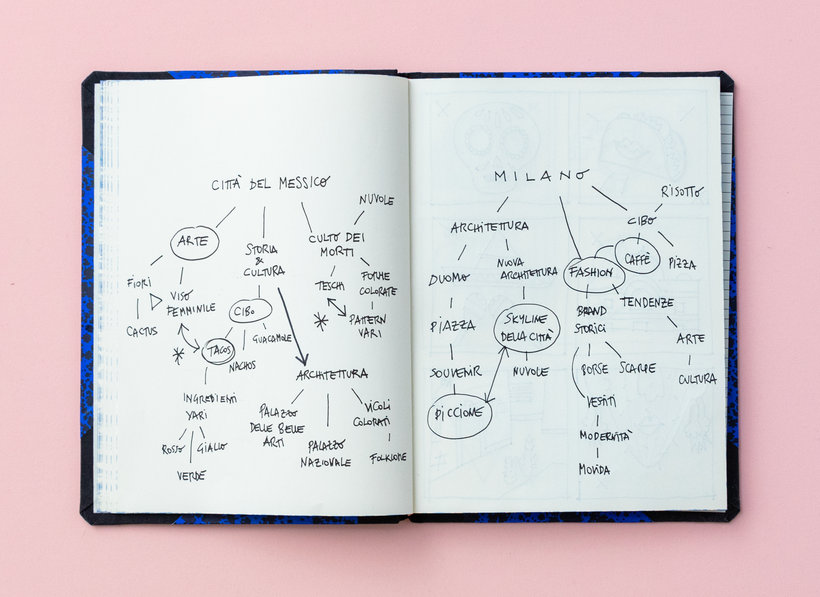 CITTÀ DEL MESSICO
NUVOLE
ARTE
STORIA
&
CULTURA
CULTO DEI
MORTI
FIORI
VISO
FEMMINILE
TESCHI
FORME
COLORATE
CACTUS
CIBO
PATTERN
VARI
TACOS
NACHOS
GUACAMOLE
ARCHITETTURA
INGREDIENTI
VARI
PALAZZO
DELLE BELLE
ARTI
PALAZZO
NAZIONALE
VICOLI
COLORATI
ROSSO
GIALLO
VERDE
FOLKLORE
MILANO
RISOTTO
ARCHITETTURA
CIBO
DUOMO
NUOVA
ARCHITETTURA
FASHION
CAFFÈ
PIZZA
PIAZZA
SKYLINE
DELLA CITTÀ
BRAND
STORICI
TENDENZE
ARTE
SOUVENIR
NUVOLE
BORSE
SCARPE
CULTURA
PICCIONE
VESTITI
MODERNITÀ
MOVIDA